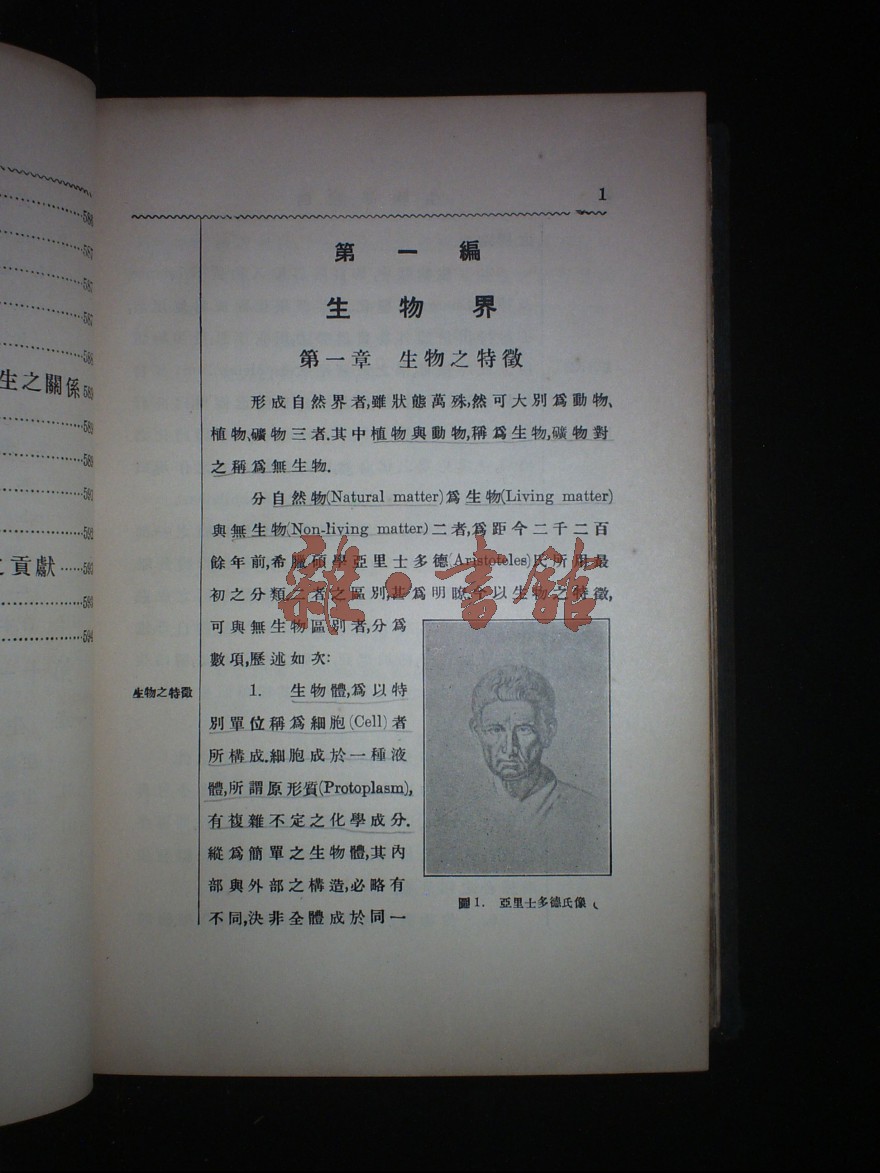 586
587
587
587
588
生之關係 589
589
589
591
592
之貢獻 593
593
594
1
第一編
生物界
第一章 生物之特徵
形成自然界者,雖狀態萬殊,然可大別爲動物、
植物、礦物三者.其中植物與動物,稱爲生物,礦物對
之稱爲無生物.
分自然物(Natural matter)爲生物(Living matter)
與無生物(Non-living matter)二者,爲距今二千二百
餘年前,希臘碩學亞里士多德(Aristoteles)氏所用最
初之分類.二者之區別,甚爲明瞭.今以生物之特徵,
可與無生物區別者,分爲
數項,歷述如次:
生物之特徵
1. 生物體,爲以特
別單位稱爲細胞(Cell)者
所構成.細胞成於一種液
體,所謂原形質(Protoplasm),
有複雜不定之化學成分.
縱爲簡單之生物體,其內
部與外部之構造,必略有
不同,決非全體成於同一
圖1. 亞里士多德氏像
雜·書館